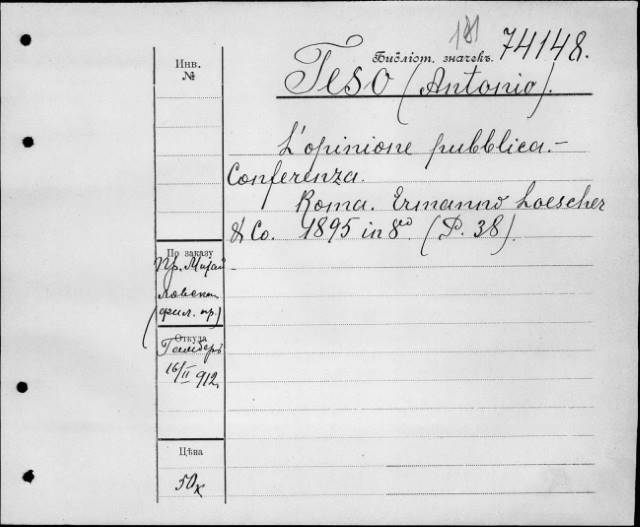 181
Библіот. значекъ. 74148.
Инв.
№
Teso (Antonio).
L'opinione pubblica. –
Conferenza.
Roma. Ermanno Loescher
& Co. 1895 in 8º. (P. 38).
По заказу
Пр. Михай
ловскій
(фил. пр.)
Откуда
16/II 912
Цѣна
50 к